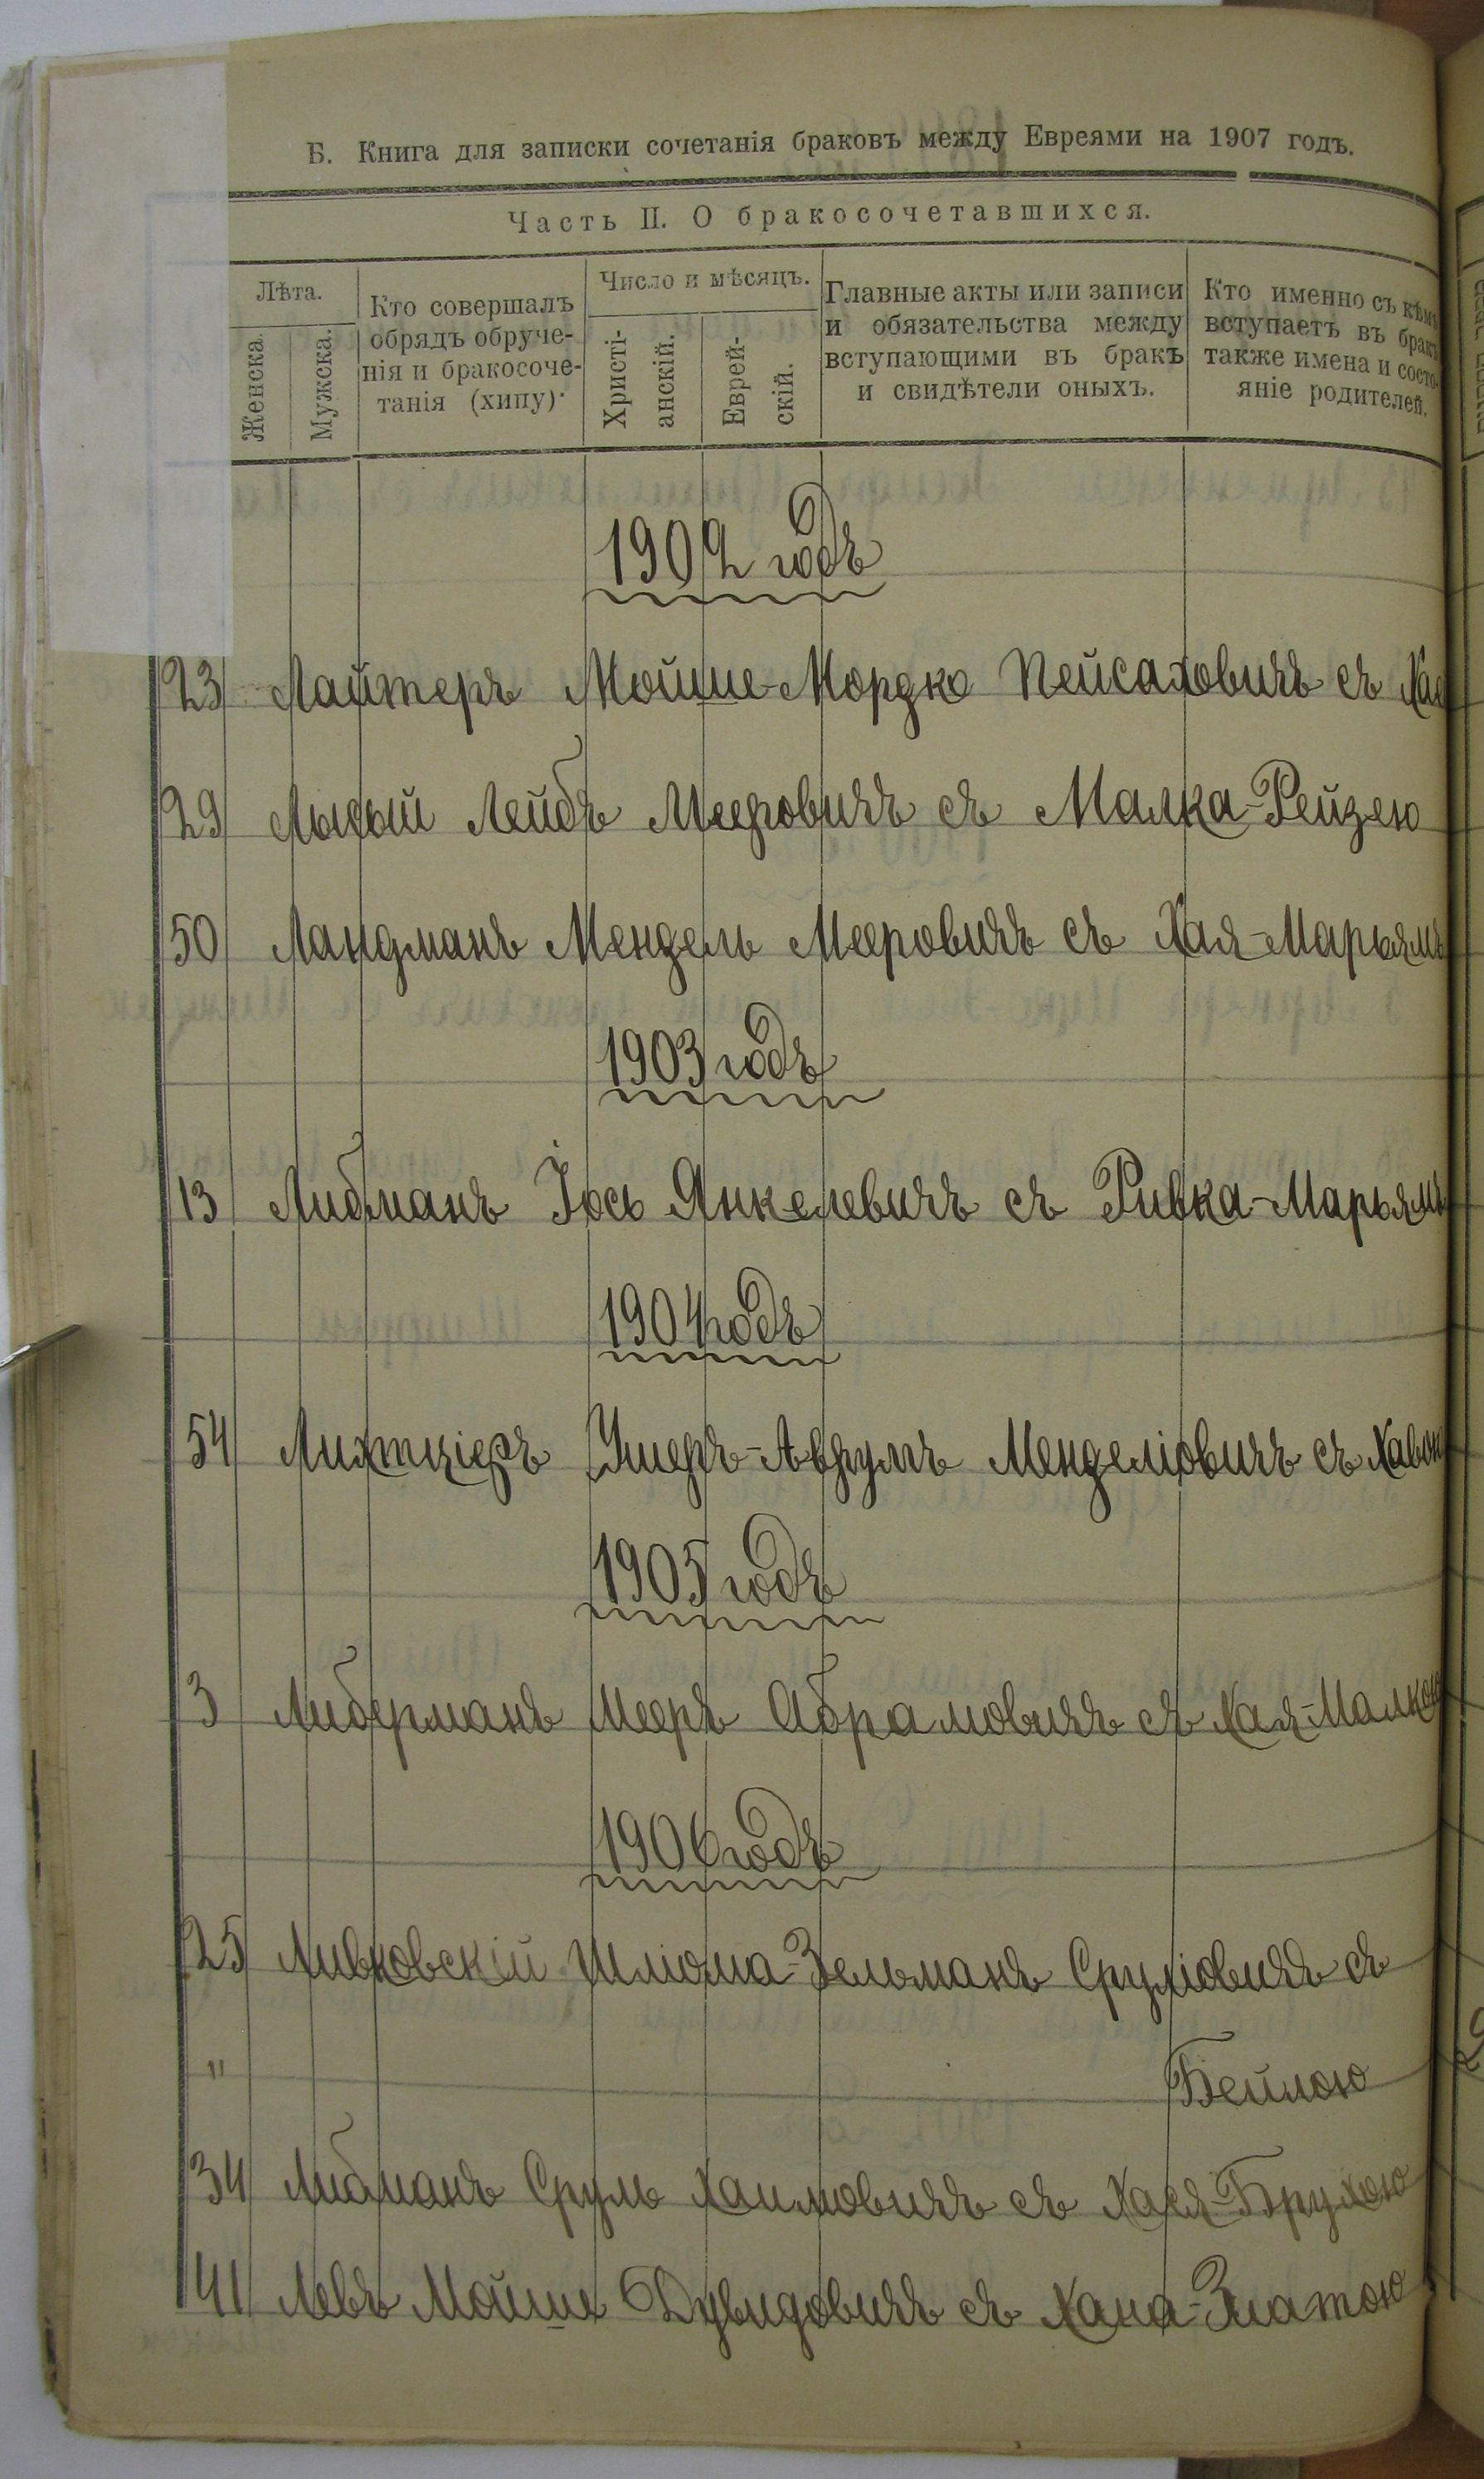 Б. Книга для записки сочетанія браковъ между Евреями на 1907 годъ.
Часть II. О бракосочетавшихся.
Лѣта.
Женска.
Мужска.
Кто совершалъ
обрядъ обруче-
нія и бракосоче-
танія (хипу).
Число и мѣсяцъ.
Христі-
анскій.
Еврей-
скій.
Главные акты или записи
и обязательства между
вступающими въ бракъ
и свидѣтели оныхъ.
Кто именно съ кѣмъ
вступаетъ въ бракъ
также имена и состо-
яніе родителей.
1902 годъ
23 Лайтеръ Мойше-Мордко Пейсаховичъ съ
29 Лысый Лейбъ Мееровичъ съ Малка-Рейзею
50 Ландманъ Мендель Мееровичъ съ Хая-Марьямъ
1903 годъ
13 Либманъ Іось Янкелевичъ съ Ривка-Марьямъ
1904 годъ
54 Лихтціеръ Ушеръ-Аврумъ Менделіовичъ съ Хавою
1905 годъ
3 Либерманъ Мееръ Абрамовичъ съ Хая-Малкою
1906 годъ
25 Ливковскій Шлiома-Зельманъ Сруліовичъ съ
" Бейлою
34 Либманъ Сруль Хаимовичъ съ Хася-Брухою
41 Левъ Мойше Дувидовичъ съ Хана-Златою